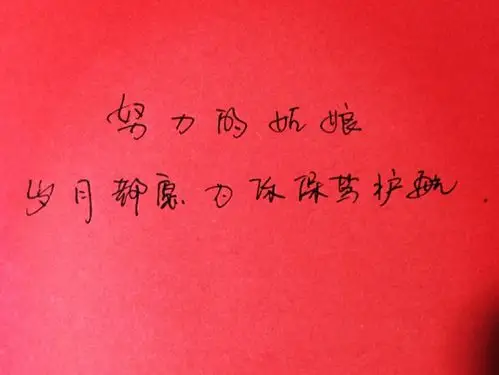 努力的姑娘
岁月都愿为你保驾护航